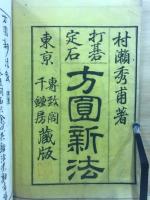 村瀬秀甫著
打碁
定石
方圓新法
東京
專致閣
千鍾房
藏版